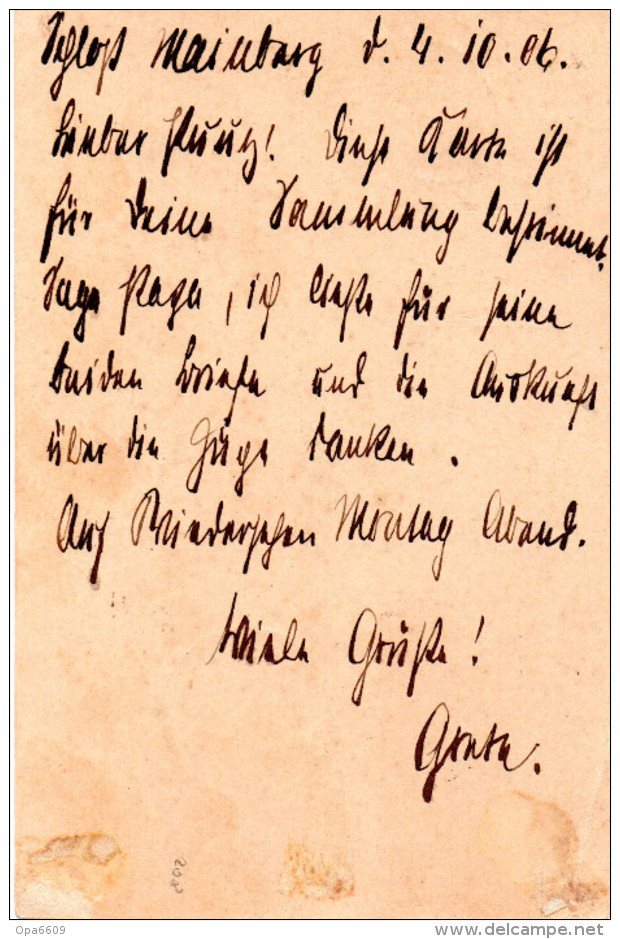 Schloß Mainberg d. 4.10.06.
Lieber Franz! Diese Karte ist
für Deine Sammlung bestimmt.
Sage Papa, ich ließe für seine
beiden Briefe und die Auskunft
über die Züge danken.
Auf Wiedersehen Montag Abend.
Viele Grüße!
Grete.
208
Opa6609
www.delcampe.net